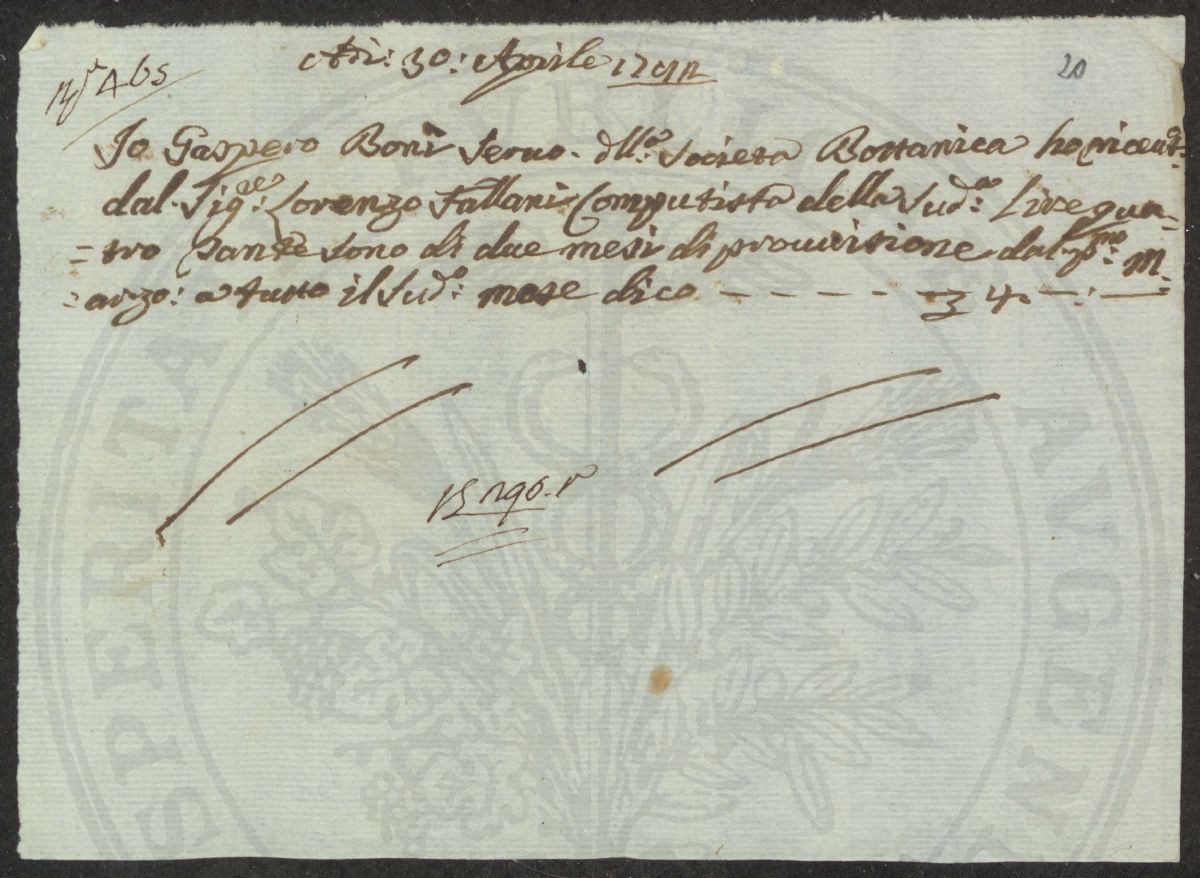 Adi: 30: Aprile
20
Io Gaspero Boni Servo. dll:o Società Bottanica ho riceut:
dal. Sig:re Lorenzo Fallani Computista della Sud:a Lire qua=
=tro Tante sono di due mesi di prouuisione dal p:mo M=
=arzo: a tutto il Sud:o mese dico - - - - - 4. - : -
PROSPERITATI PUBLICAE AUGENDAE